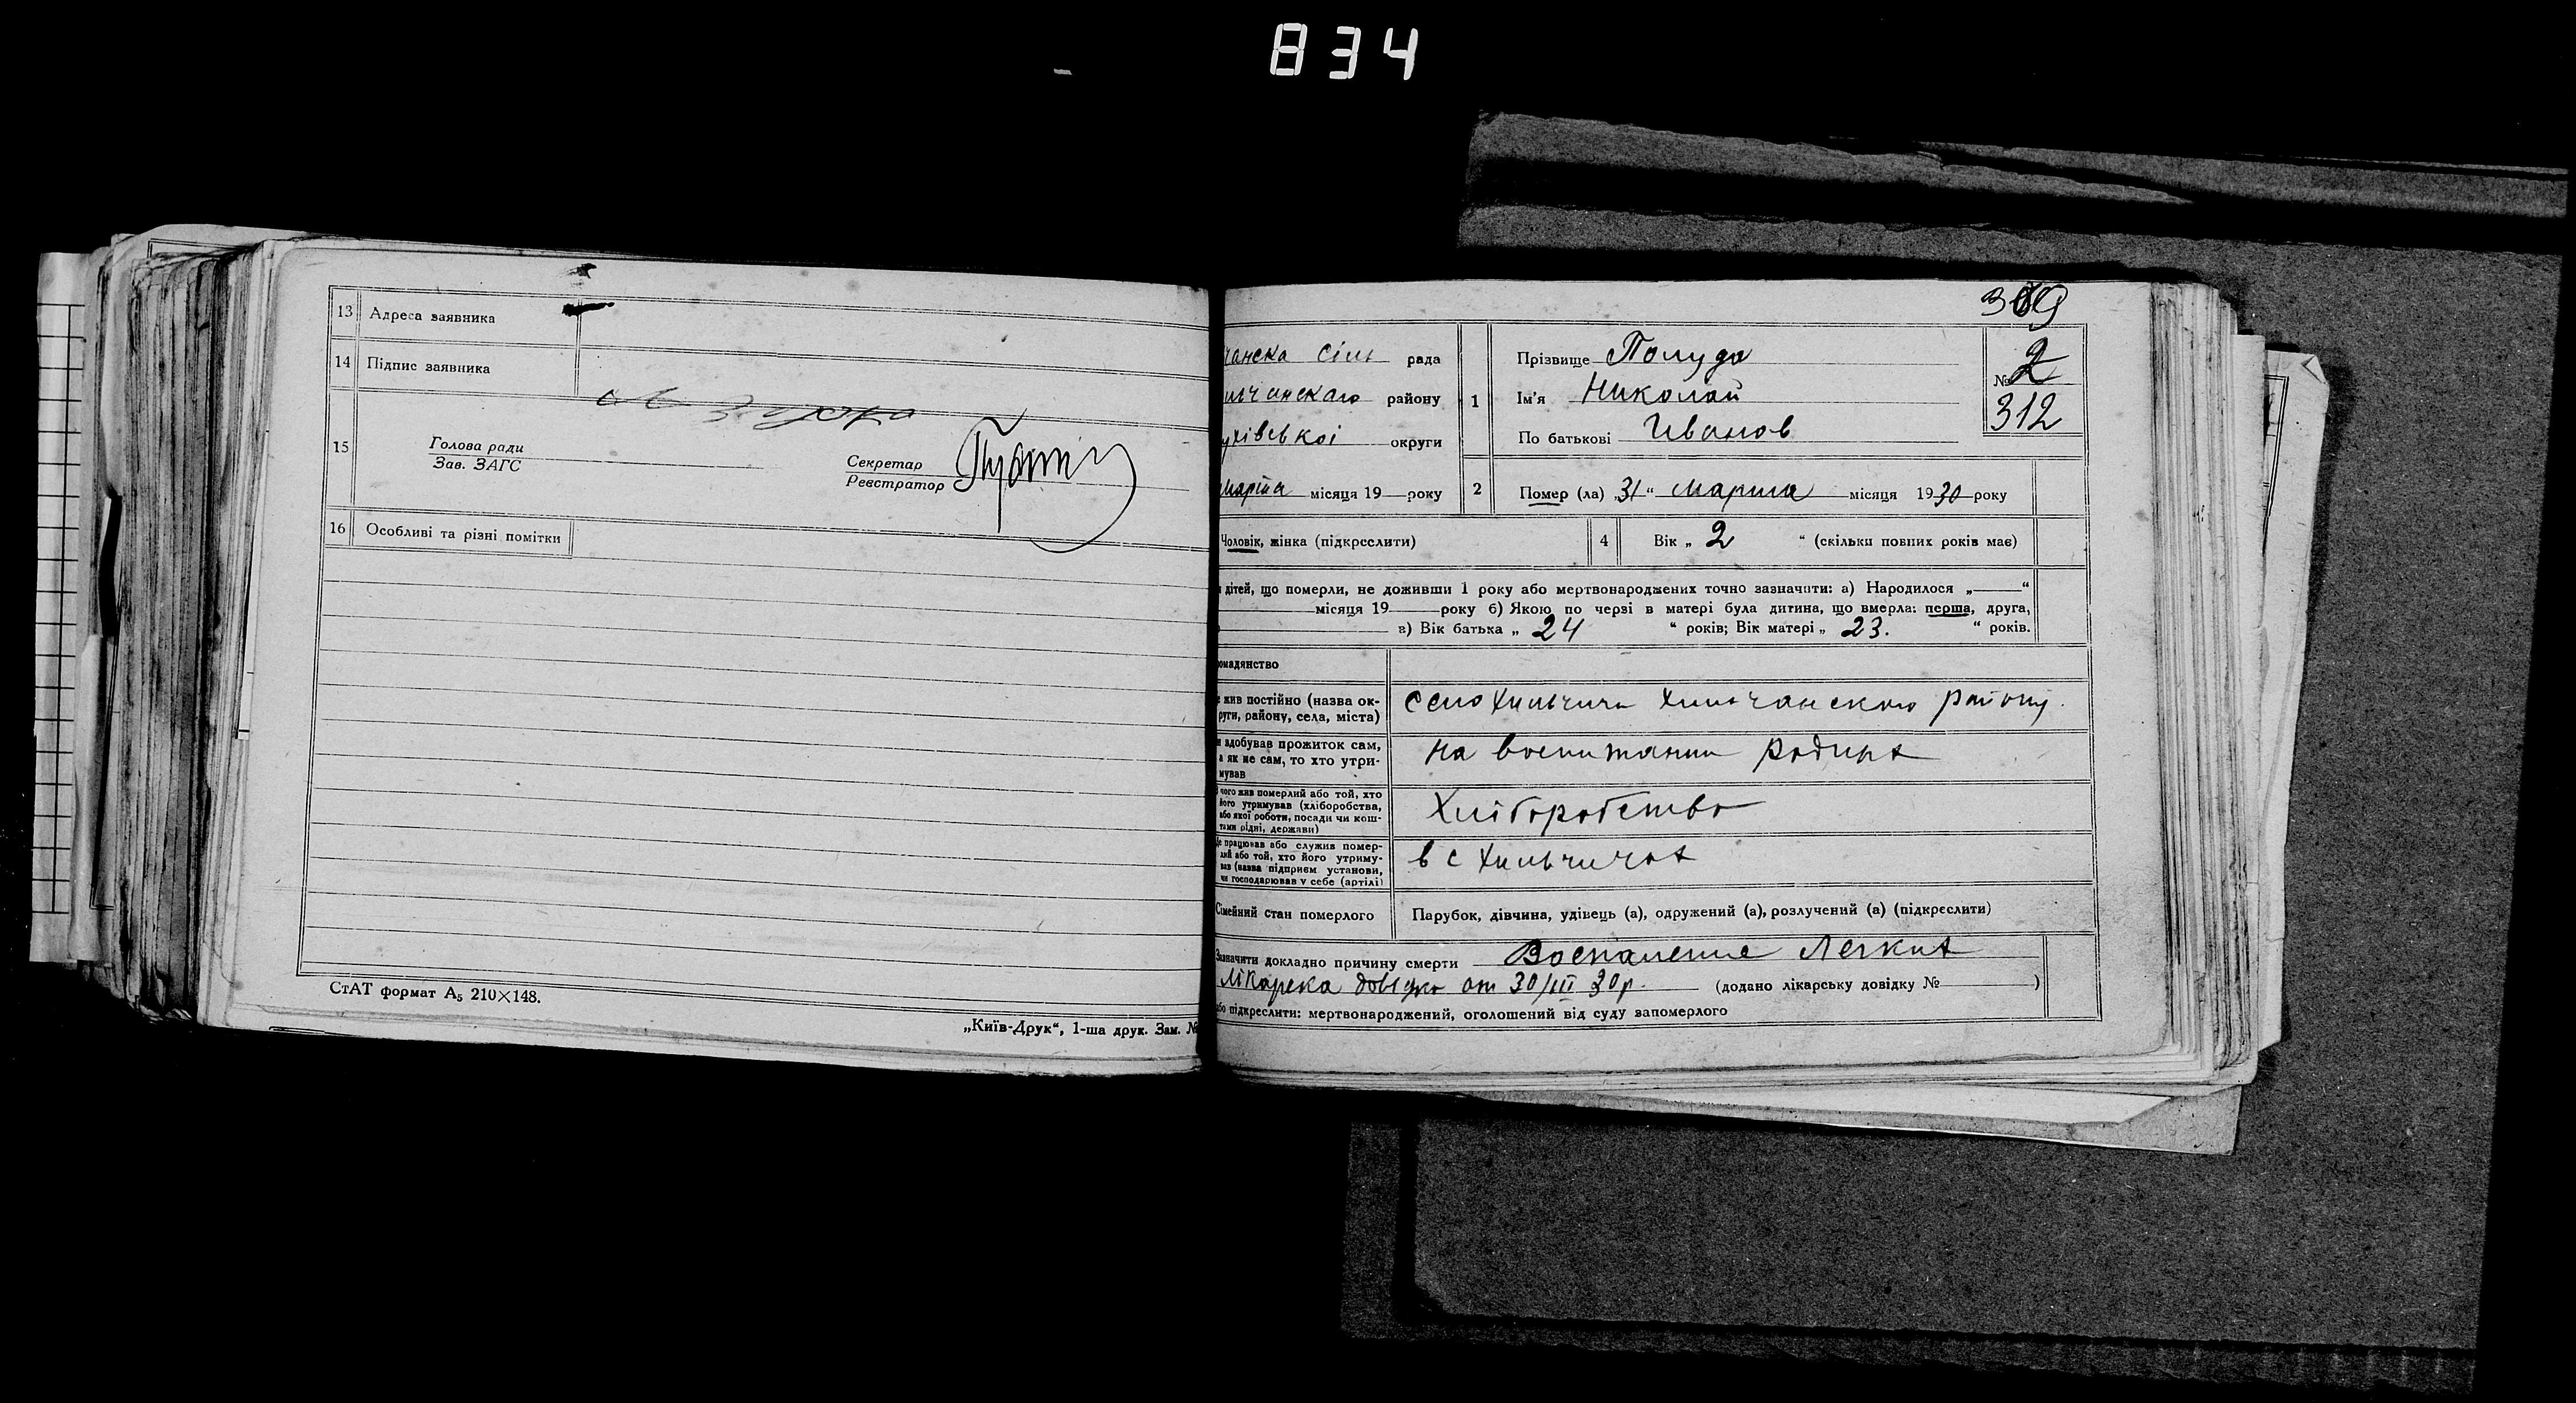 834
13 Адреса заявника
14 Підпис заявника
15 Голова ради
Зав. ЗАГС
Секретар
Реєстратор
16 Особливі та різні помітки
СтАТ формат А5 210×148.
„Київ-Друк“, 1-ша друк. Зам. №
309
чанска сіль рада
льчанскаго району
ухівськоі округи
Марта місяця 19 року
1 Прізвище Полуда
Ім'я Николай
По батькові Иванов
№ 2
312
2 Помер (ла) „31“ Марта місяця 1930 року
Чоловік, жінка (підкреслити)
4 Вік „ 2 “ (скільки повних років має)
дітей, що померли, не доживши 1 року або мертвонароджених точно зазначити: а) Народилося „ “
місяця 19 року б) Якою по черзі в матері була дитина, що вмерла: перша, друга,
в) Вік батька „ 24 “ років; Вік матері „ 23. “ років.
омадянство
жив постійно (назва ок-
руги, району, села, міста)
село Хильчичи Хильчанского району.
здобував прожиток сам,
а як не сам, то хто утри-
мував
на воспитании родных
чого жив померлий або той, хто
його утримував (хліборобства,
або якої роботи, посади чи кош-
тами рідні, держави)
Хліборобство
Де працював або служив помер-
лий або той, хто його утриму-
вав (назва підприєм установи,
чи господарював у себе (артілі)
в с Хильчичах
Сімейний стан померлого
Парубок, дівчина, удівець (а), одружений (а), розлучений (а) (підкреслити)
Зазначити докладно причину смерти Воспаление Легких
Лікарска довідка от 30/III 30 р. (додано лікарську довідку № )
або підкреслити: мертвонароджений, оголошений від суду запомерлого